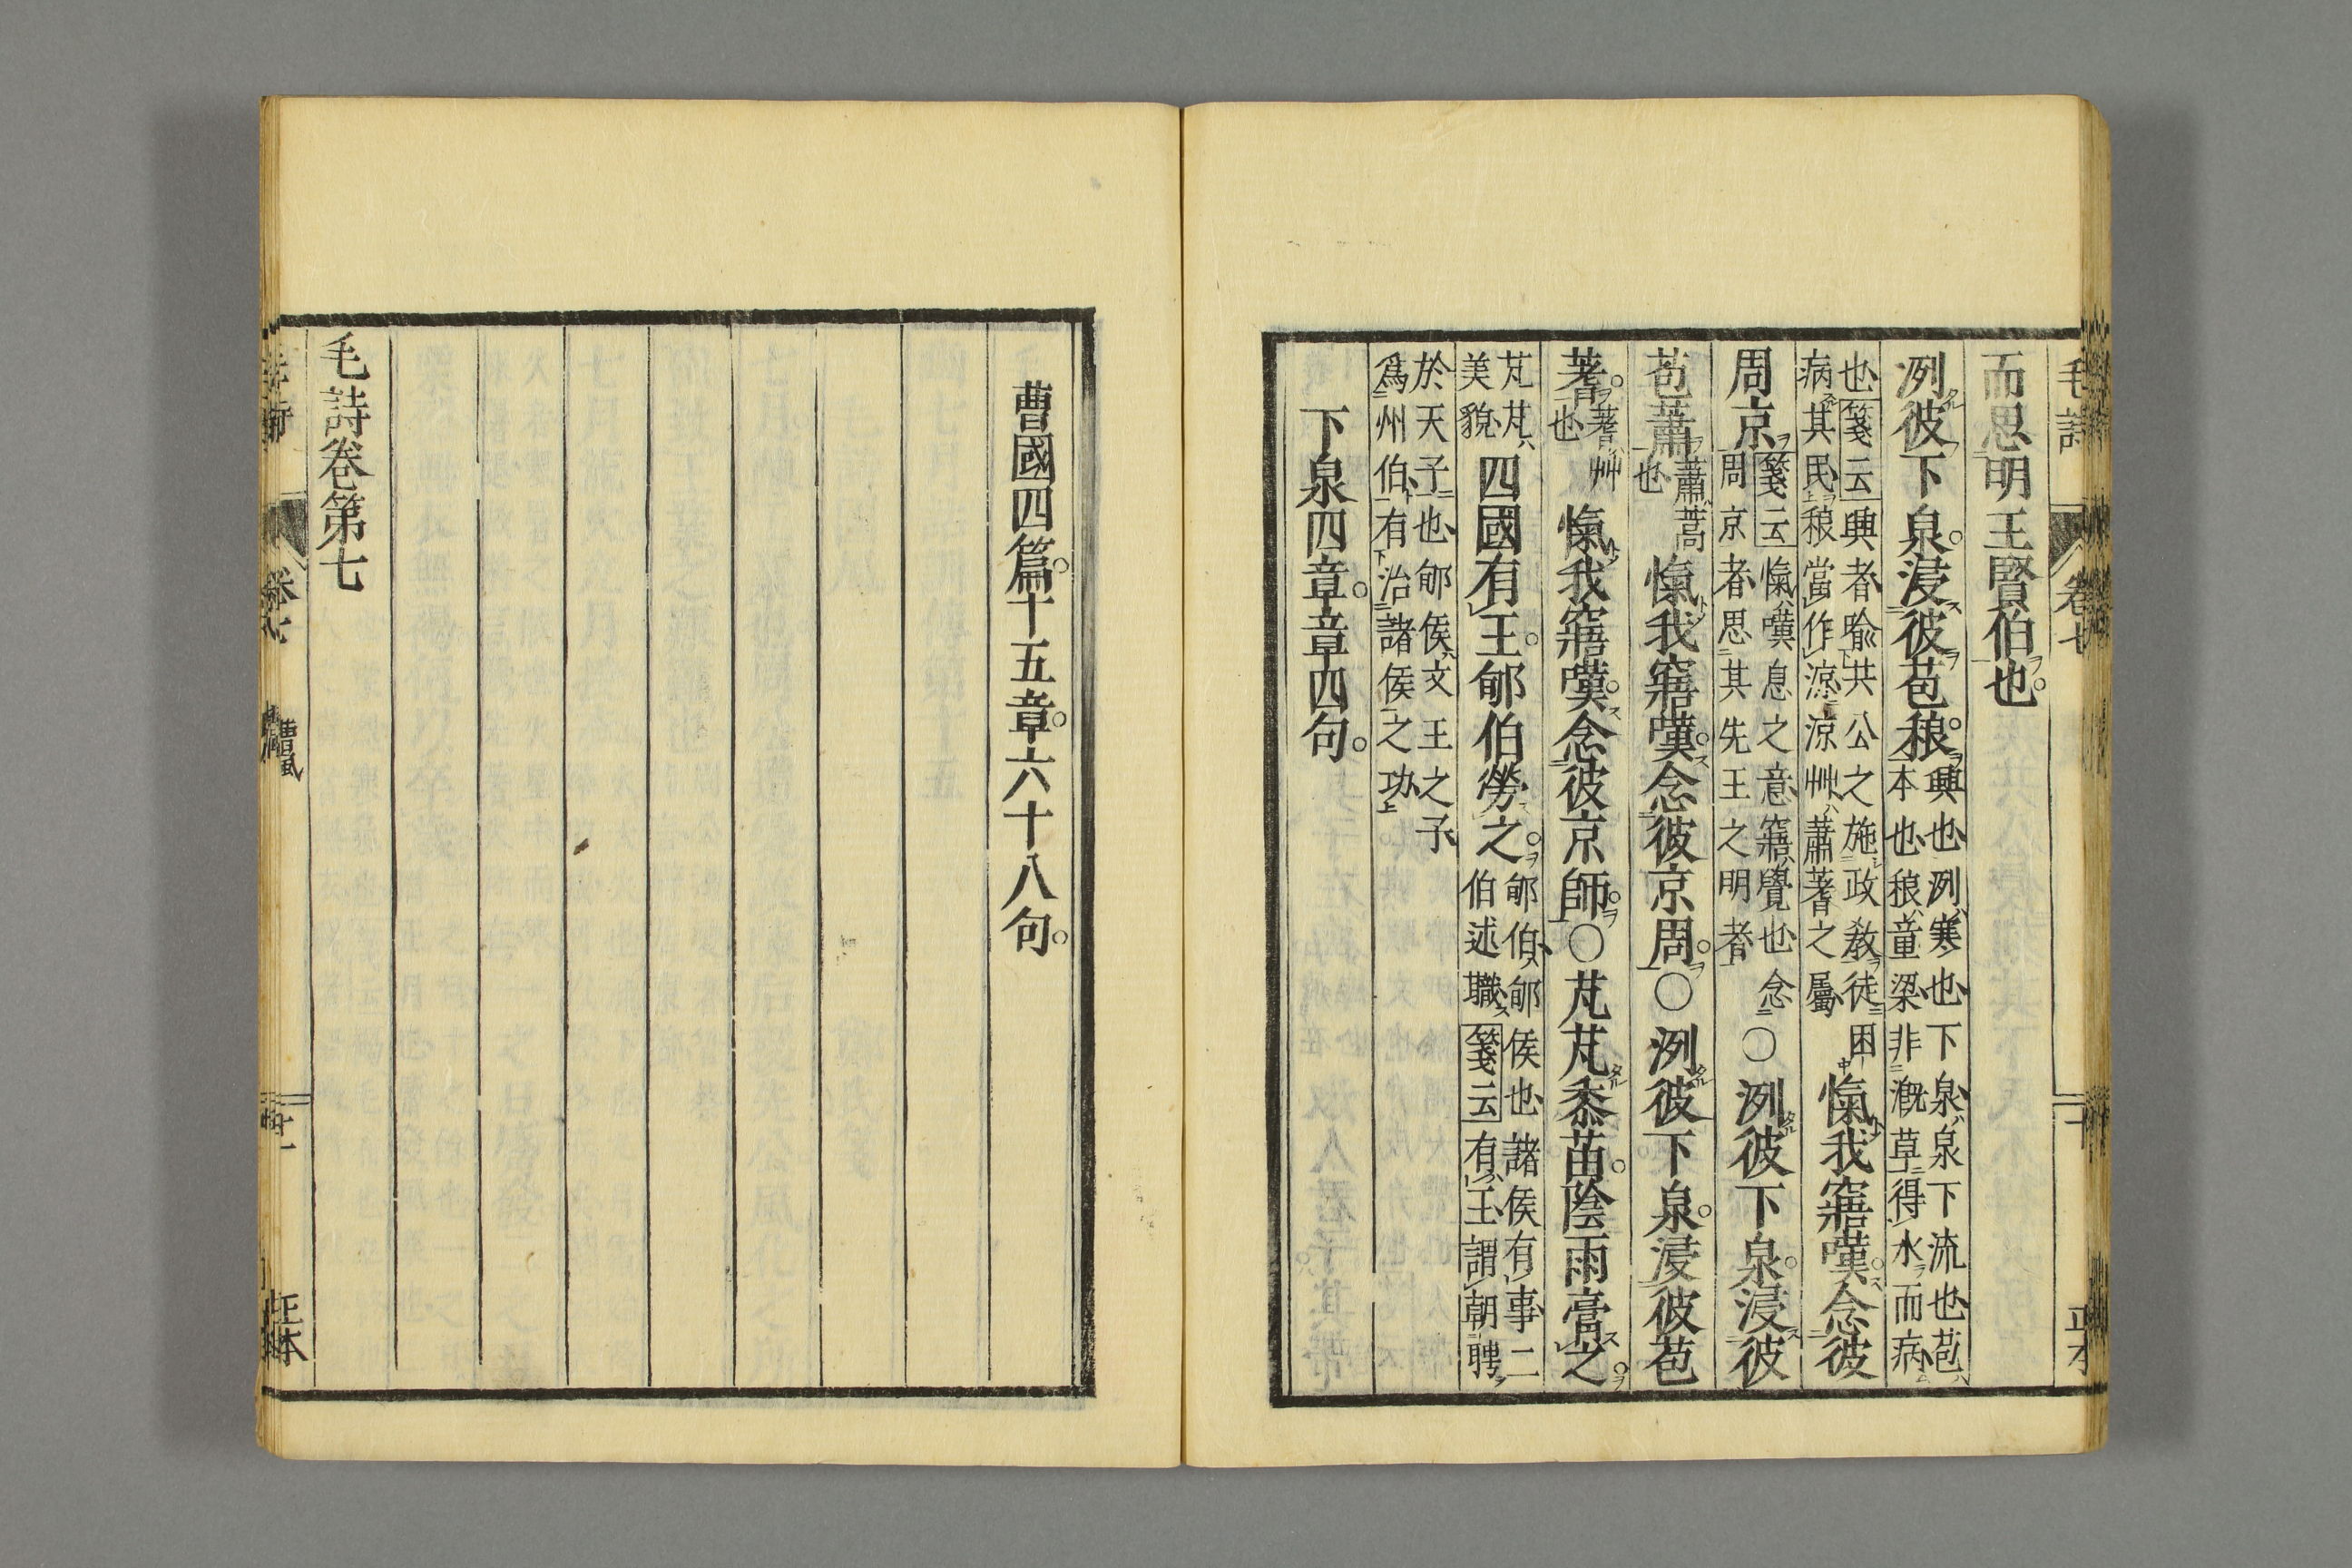 而思明王賢伯也
洌彼下泉浸彼苞稂興也洌寒也下泉泉下流也苞
本也稂童梁非漑草得水而病
也箋云興者喩共公之施政敎徒困
病其民稂當作涼涼艸蕭蓍之屬
愾我寤嘆念彼
周京箋云愾嘆息之意寤覺也念
周京者思其先王之明者
○洌彼下泉浸彼
苞蕭蕭蒿
也
愾我寤嘆念彼京周○洌彼下泉浸彼苞
蓍蓍艸
也
愾我寤嘆念彼京師○芃芃黍苗陰雨膏之
芃芃
美貌
四國有王郇伯勞之郇伯郇侯也諸侯有事二
伯述職箋云有王謂朝聘
於天子也郇侯文王之子
爲州伯有治諸侯之功
下泉四章章四句
曹國四篇十五章六十八句
毛詩卷第七